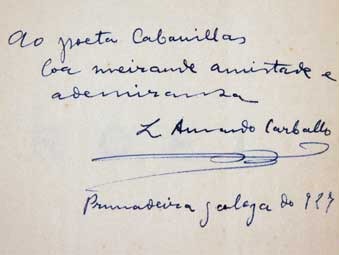 Ao poeta Cabanillas
Coa meirande amistade e
ademiranza
L Amado Carballo
Primadeira galega do 927